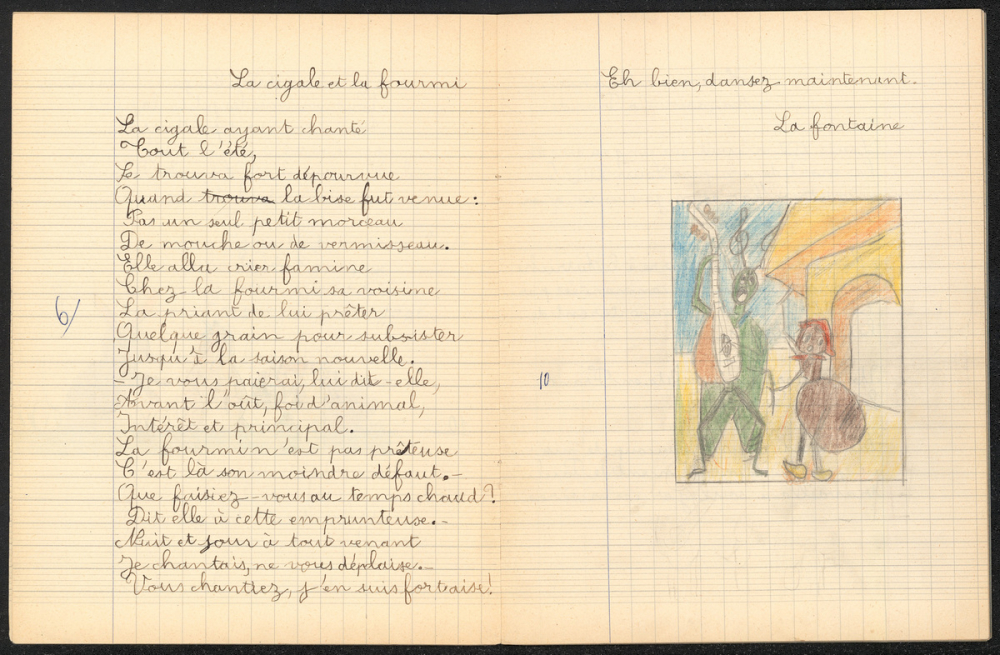 La cigale et la fourmi
La cigale ayant chanté
Tout l'été,
Se trouva fort dépourvue
Quand trouva la bise fut venue :
Pas un seul petit morceau
De mouche ou de vermisseau.
Elle alla crier famine
Chez la fourmi sa voisine
La priant de lui prêter
Quelque grain pour subsister
Jusqu'à la saison nouvelle.
- Je vous paierai, lui dit-elle,
Avant l'oût, foi d'animal,
Intérêt et principal.
La fourmi n'est pas prêteuse
C'est là son moindre défaut.-
Que faisiez-vous au temps chaud ?
Dit elle à cette emprunteuse.-
Nuit et jour à tout venant
Je chantais, ne vous déplaise.-
Vous chantiez, j'en suis fort aise !
6
Eh bien, dansez maintenant.
La fontaine
10